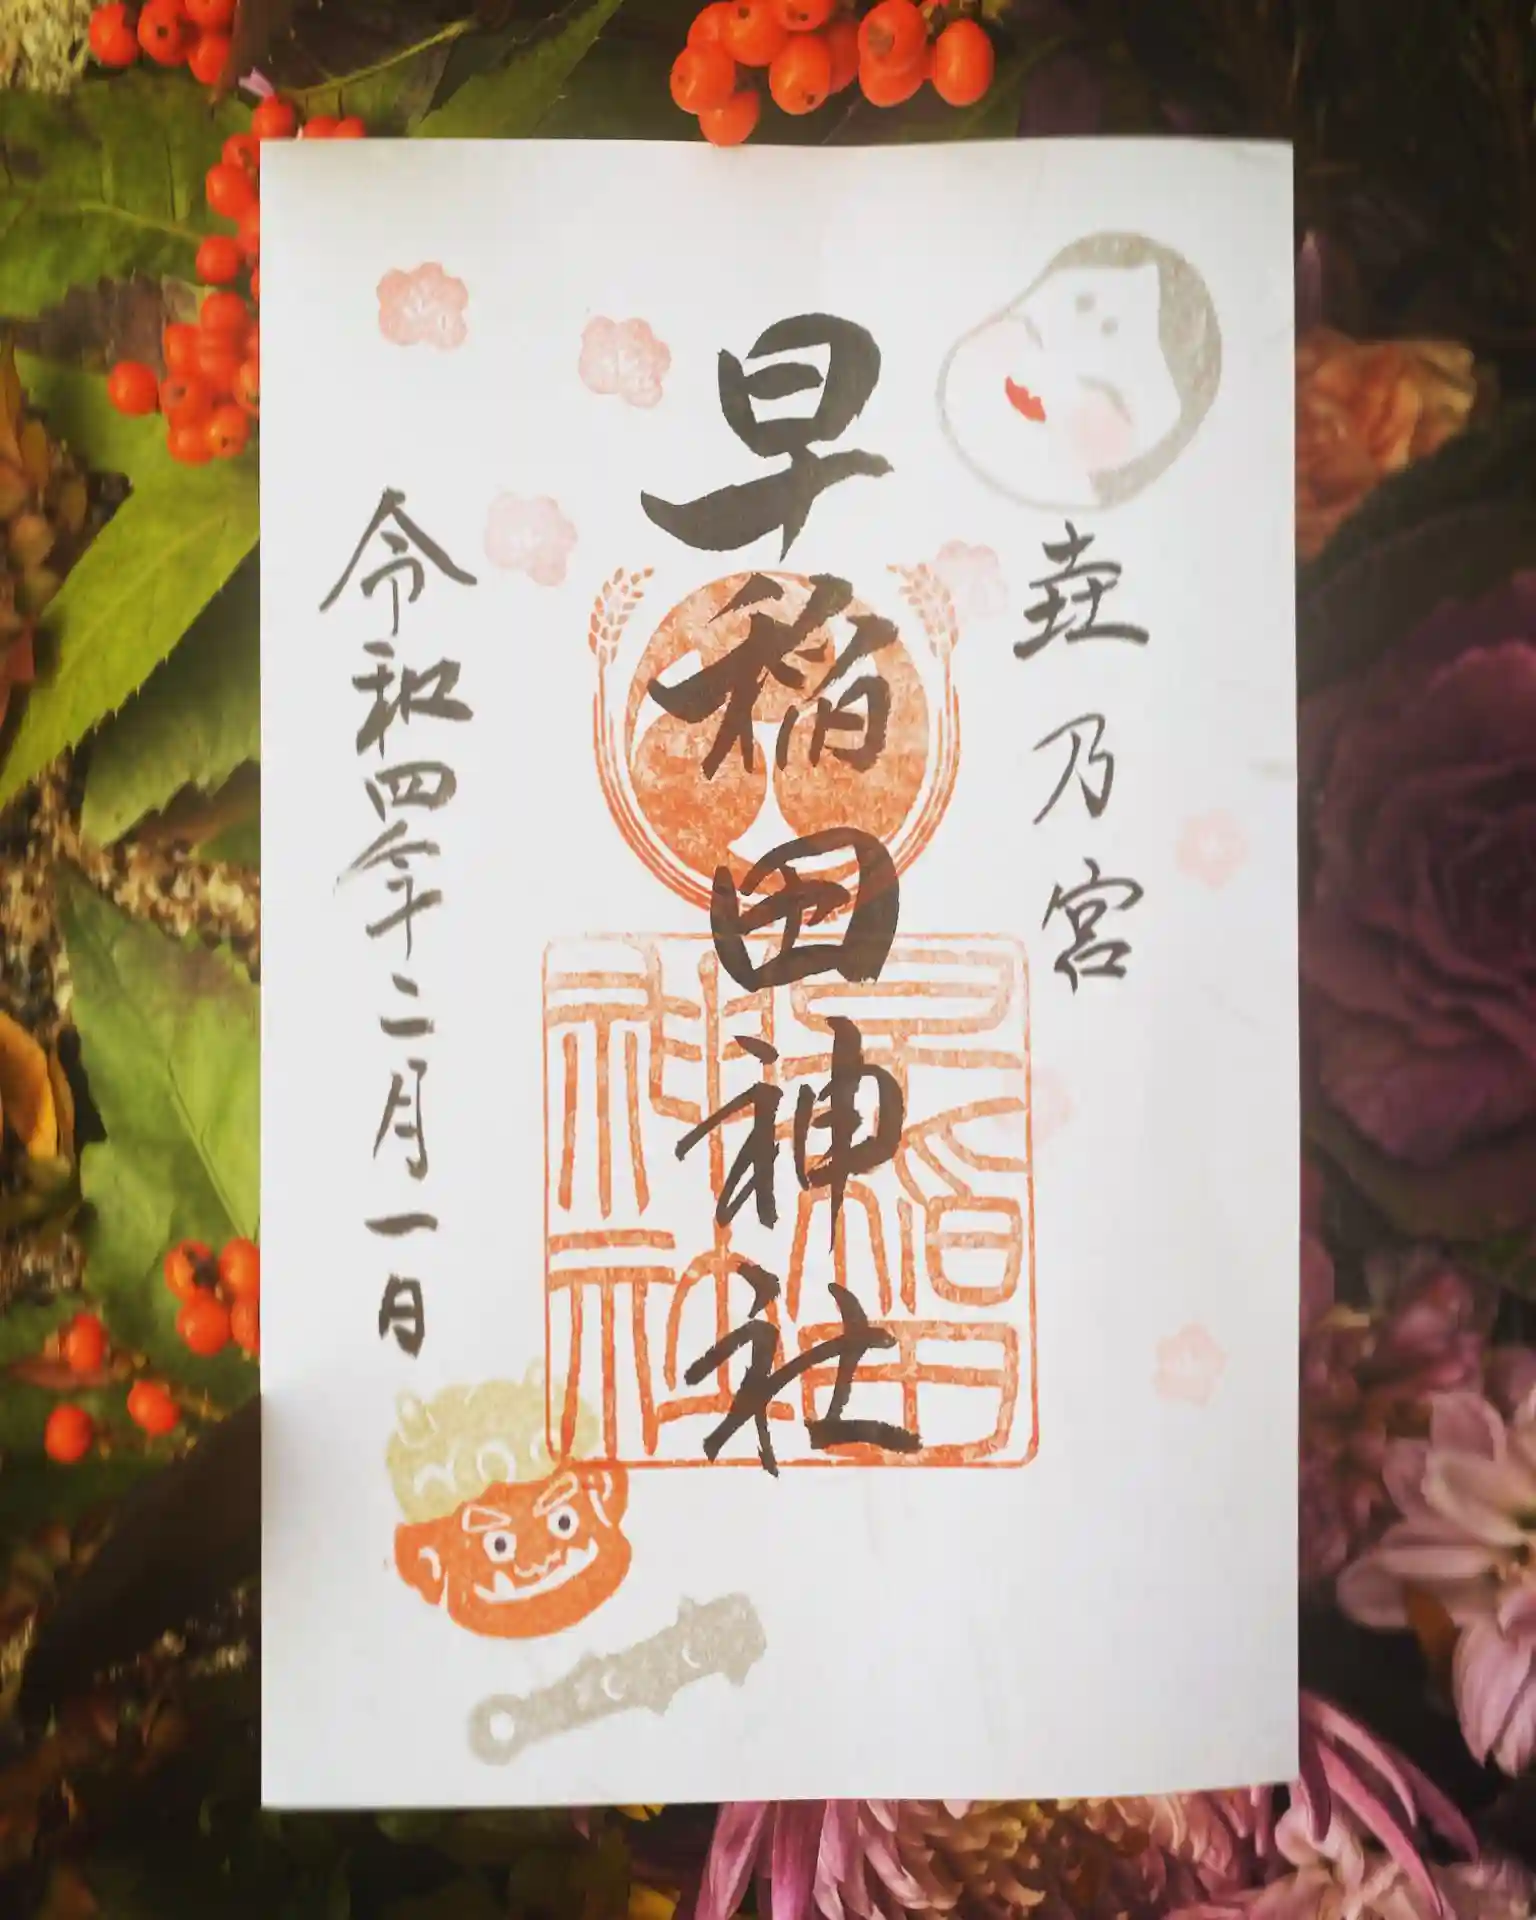 壷乃宮
早稲田神社
早稲田
神社
令和四年二月一日